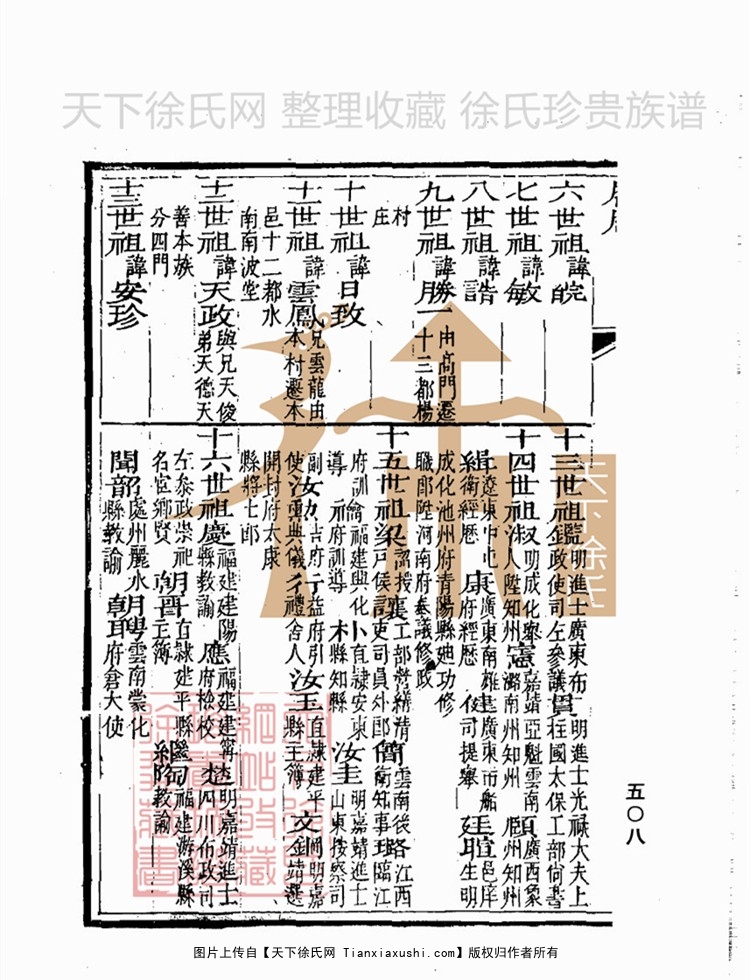 天下徐氏网 整理收藏 徐氏珍贵族谱
六世祖諱皖
七世祖諱敏
八世祖諱誥
九世祖諱勝一由高門遷
十三都楊
村
庄
十世祖諱日致
十一世祖諱雲鳳兄雲龍由
本村遷本
邑十二都水
南南波堂
十二世祖諱天政與兄天俊
弟天德天
善本族
分四門
十三世祖諱安珍
十三世祖鑑明進士廣東布
政使司左參議貫明進士光祿大夫上
柱國太保工部尙書
十四世祖淑明成化舉
人陞知州憲嘉靖亞魁雲南
潞南州知州頤廣西象
州知州
緝遼東中屯
衛經歷康廣東南雄
府經歷健廣東市舶
司提舉廷瑄邑庠
生明
成化池州府青陽縣廸功修
職郎陞河南府叅議修政
十五世祖梁
吏司員外郎簡雲南後
衛知事璐江西
臨江
府訓福建興化
府訓導朴直隷安東
縣知縣汝圭明嘉靖進士
山東按察司
副
府行益府引
禮舍人汝玉直隷建平
縣主簿文
明嘉
靖選
開封府太康
縣將士郎
十六世祖慶福建建陽
縣教諭應福建建寧
府檢校楚明嘉靖進士
四川布政司
左叅政崇祀
名宦鄉賢直隷建平縣
主簿福建游溪縣
教諭
聞韶處州麗水
縣教諭朝聘雲南蒙化
府倉大使
五〇八
天下徐氏
图片上传自【天下徐氏网 Tianxiaxushi.com】版权归作者所有